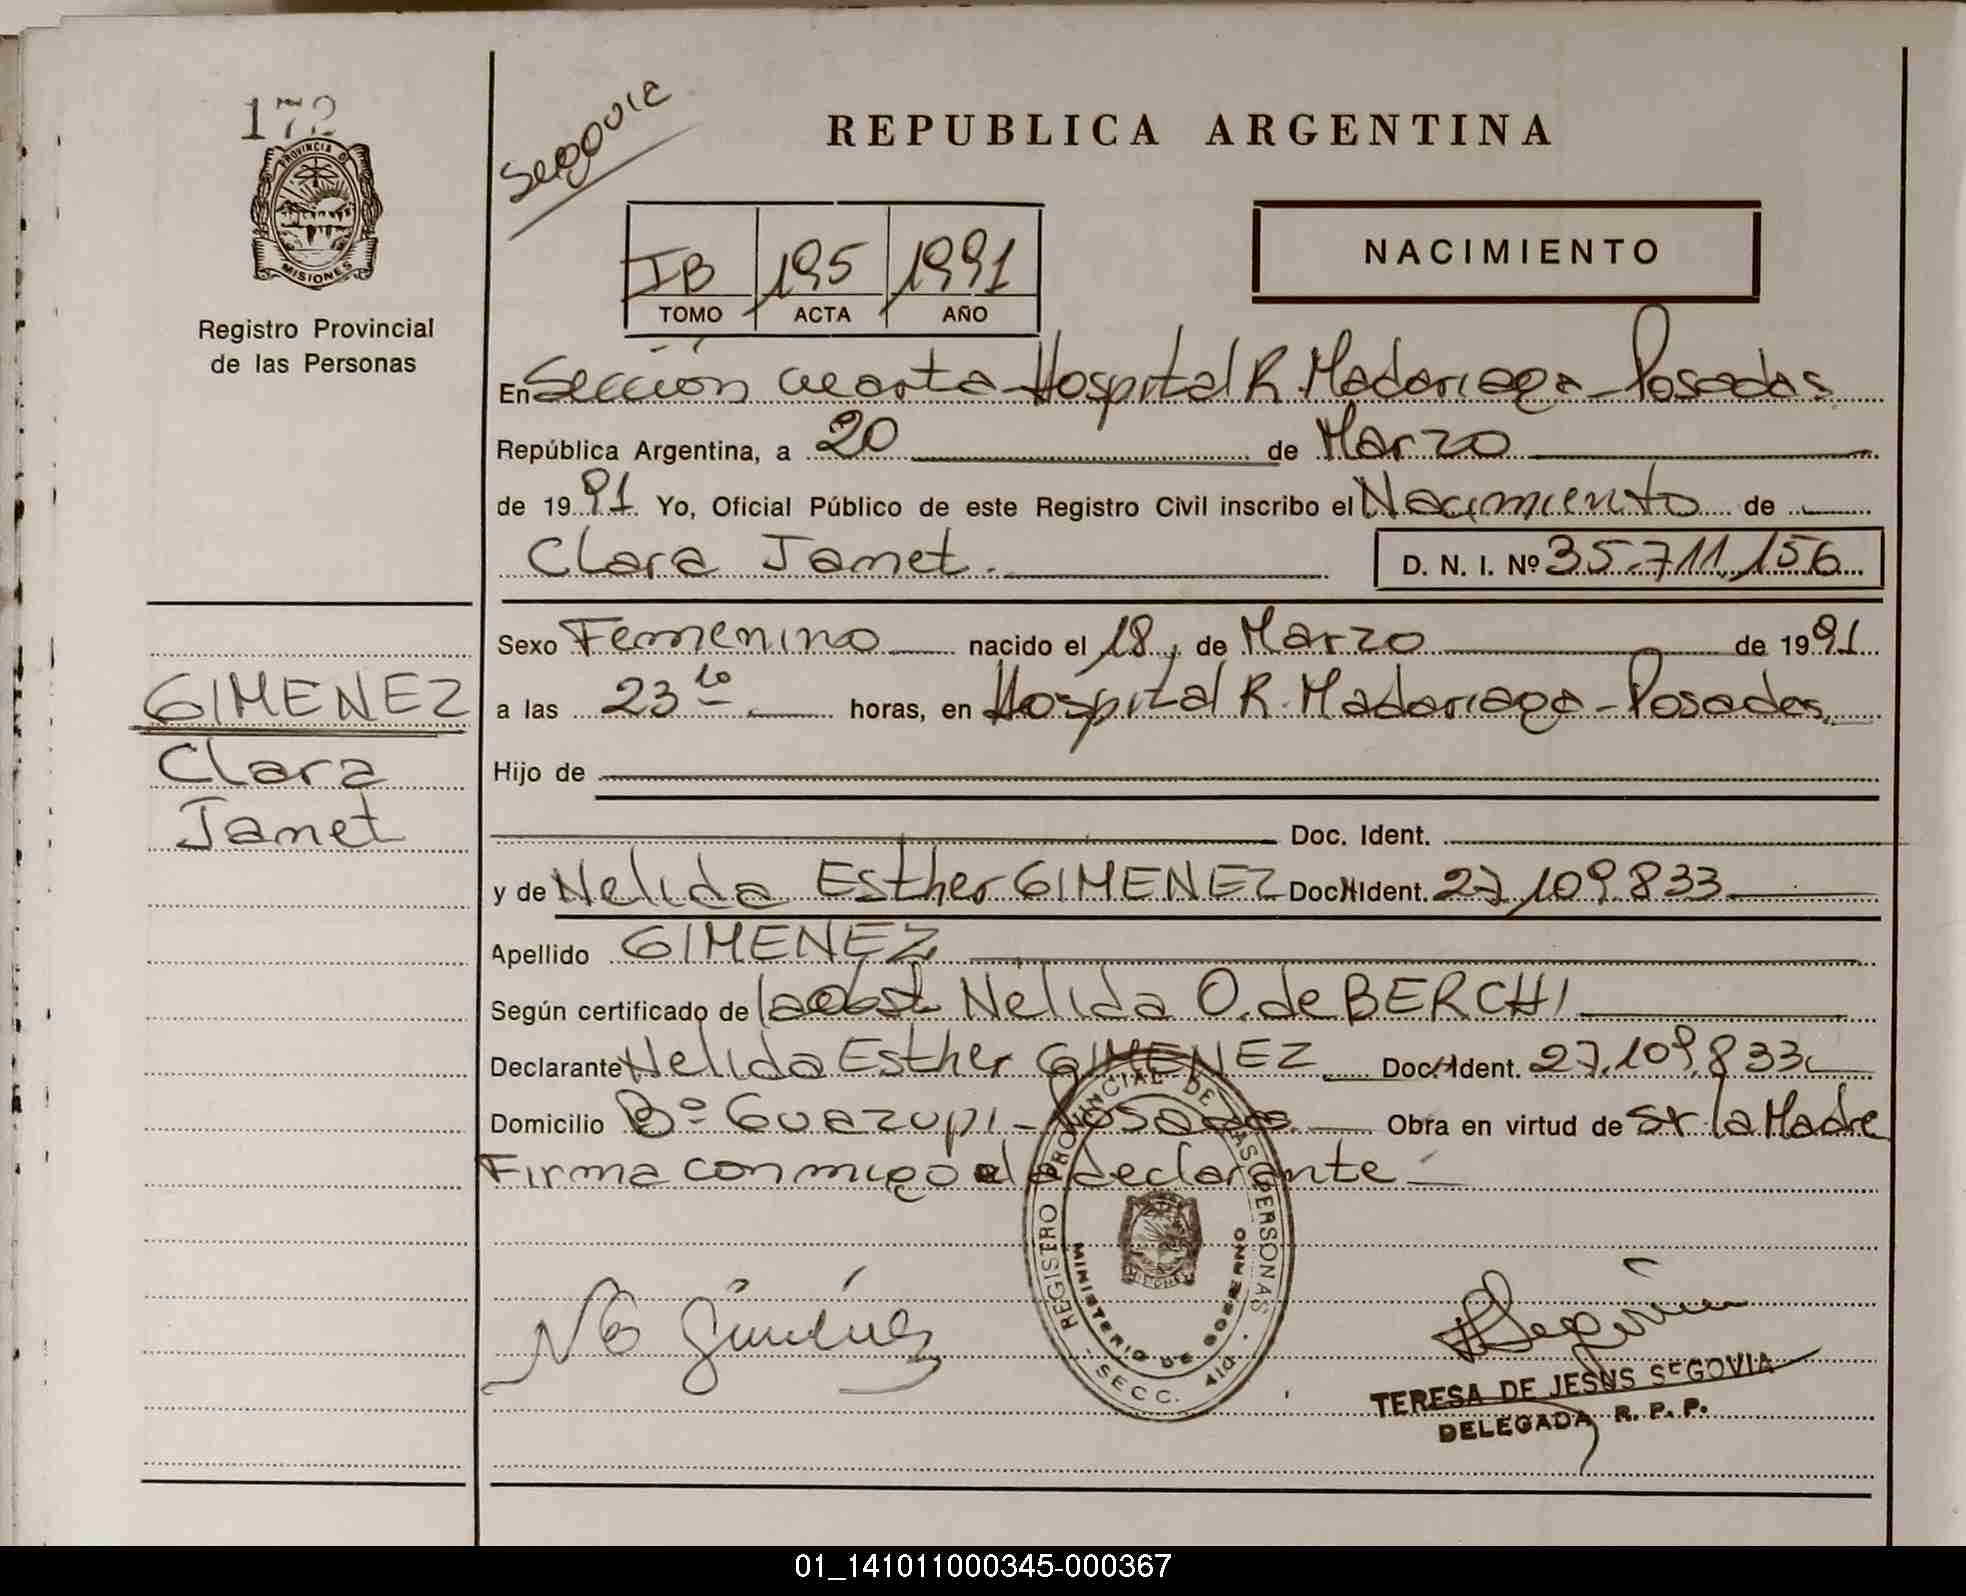 172
Segovia
REPUBLICA ARGENTINA
PROVINCIA DE
MISIONES
Registro Provincial
de las Personas
IB 195 1991
TOMO ACTA AÑO
NACIMIENTO
En Sección cuarta Hospital R. Madariaga - Posadas
República Argentina, a 20 de Marzo
de 1991 Yo, Oficial Público de este Registro Civil inscribo el Nacimiento de
Clara Janet. D. N. I. Nº 35.711.156
Sexo Femenino nacido el 18, de Marzo de 1991
a las 23 10 horas, en Hospital R. Madariaga - Posadas
GIMENEZ
Clara
Janet
Hijo de
Doc. Ident.
y de Nelida Esther GIMENEZ Doc. Ident. 27.109.833
Apellido GIMENEZ
Según certificado de la obst Nélida O. de BERCHI
Declarante Nelida Esther GIMENEZ Doc. Ident. 27.109.833
Domicilio Bº Guazupi - Posadas Obra en virtud de Sr la Madre
Firma conmigo el declarante
REGISTRO PROVINCIAL DE LAS PERSONAS
MINISTERIO DE GOBIERNO
SECC. 4ta
Giménez
TERESA DE JESUS SEGOVIA
DELEGADA R. P. P.
01_141011000345-000367